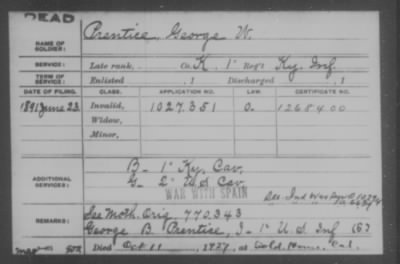 DEAD
NAME OF SOLDIER: Prentice, George W.
SERVICE: Late rank, Co. K, 1" Reg't Ky. Inf
TERM OF SERVICE: Enlisted , 1 Discharged , 1
DATE OF FILING. CLASS. APPLICATION NO. LAW. CERTIFICATE NO.
1891 June 23 Invalid, 1027.351 O. 1268400
Widow,
Minor,
ADDITIONAL SERVICES:
B - 1" Ky. Cav.
G - 2" U S Cav.
WAR WITH SPAIN
REMARKS: See Moth. Orig. 770.343
George B. Prentice, I - 1" U. S Inf
Died Oct 11, 1927, at Cal.